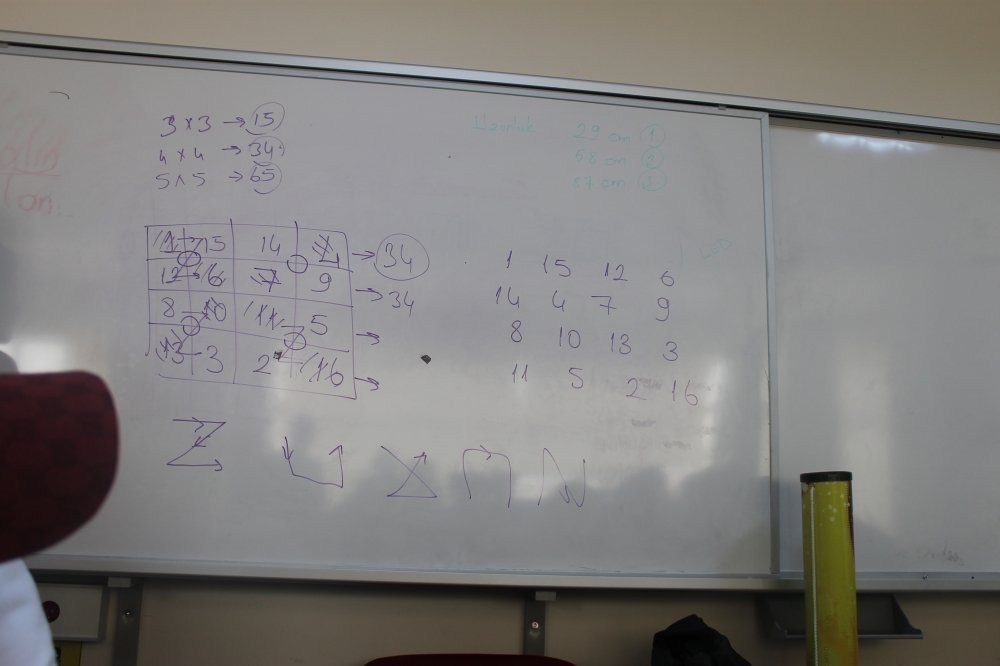 3 x 3 → 15
4 x 4 → 34
5 x 5 → 65
Uzunluk 29 cm 1
58 cm 2
87 cm 3
LED
1 15 14 4 → 34
12 6 7 9 → 34
8 10 11 5 →
13 3 2 16 →
1 15 12 6
14 4 7 9
8 10 13 3
11 5 2 16